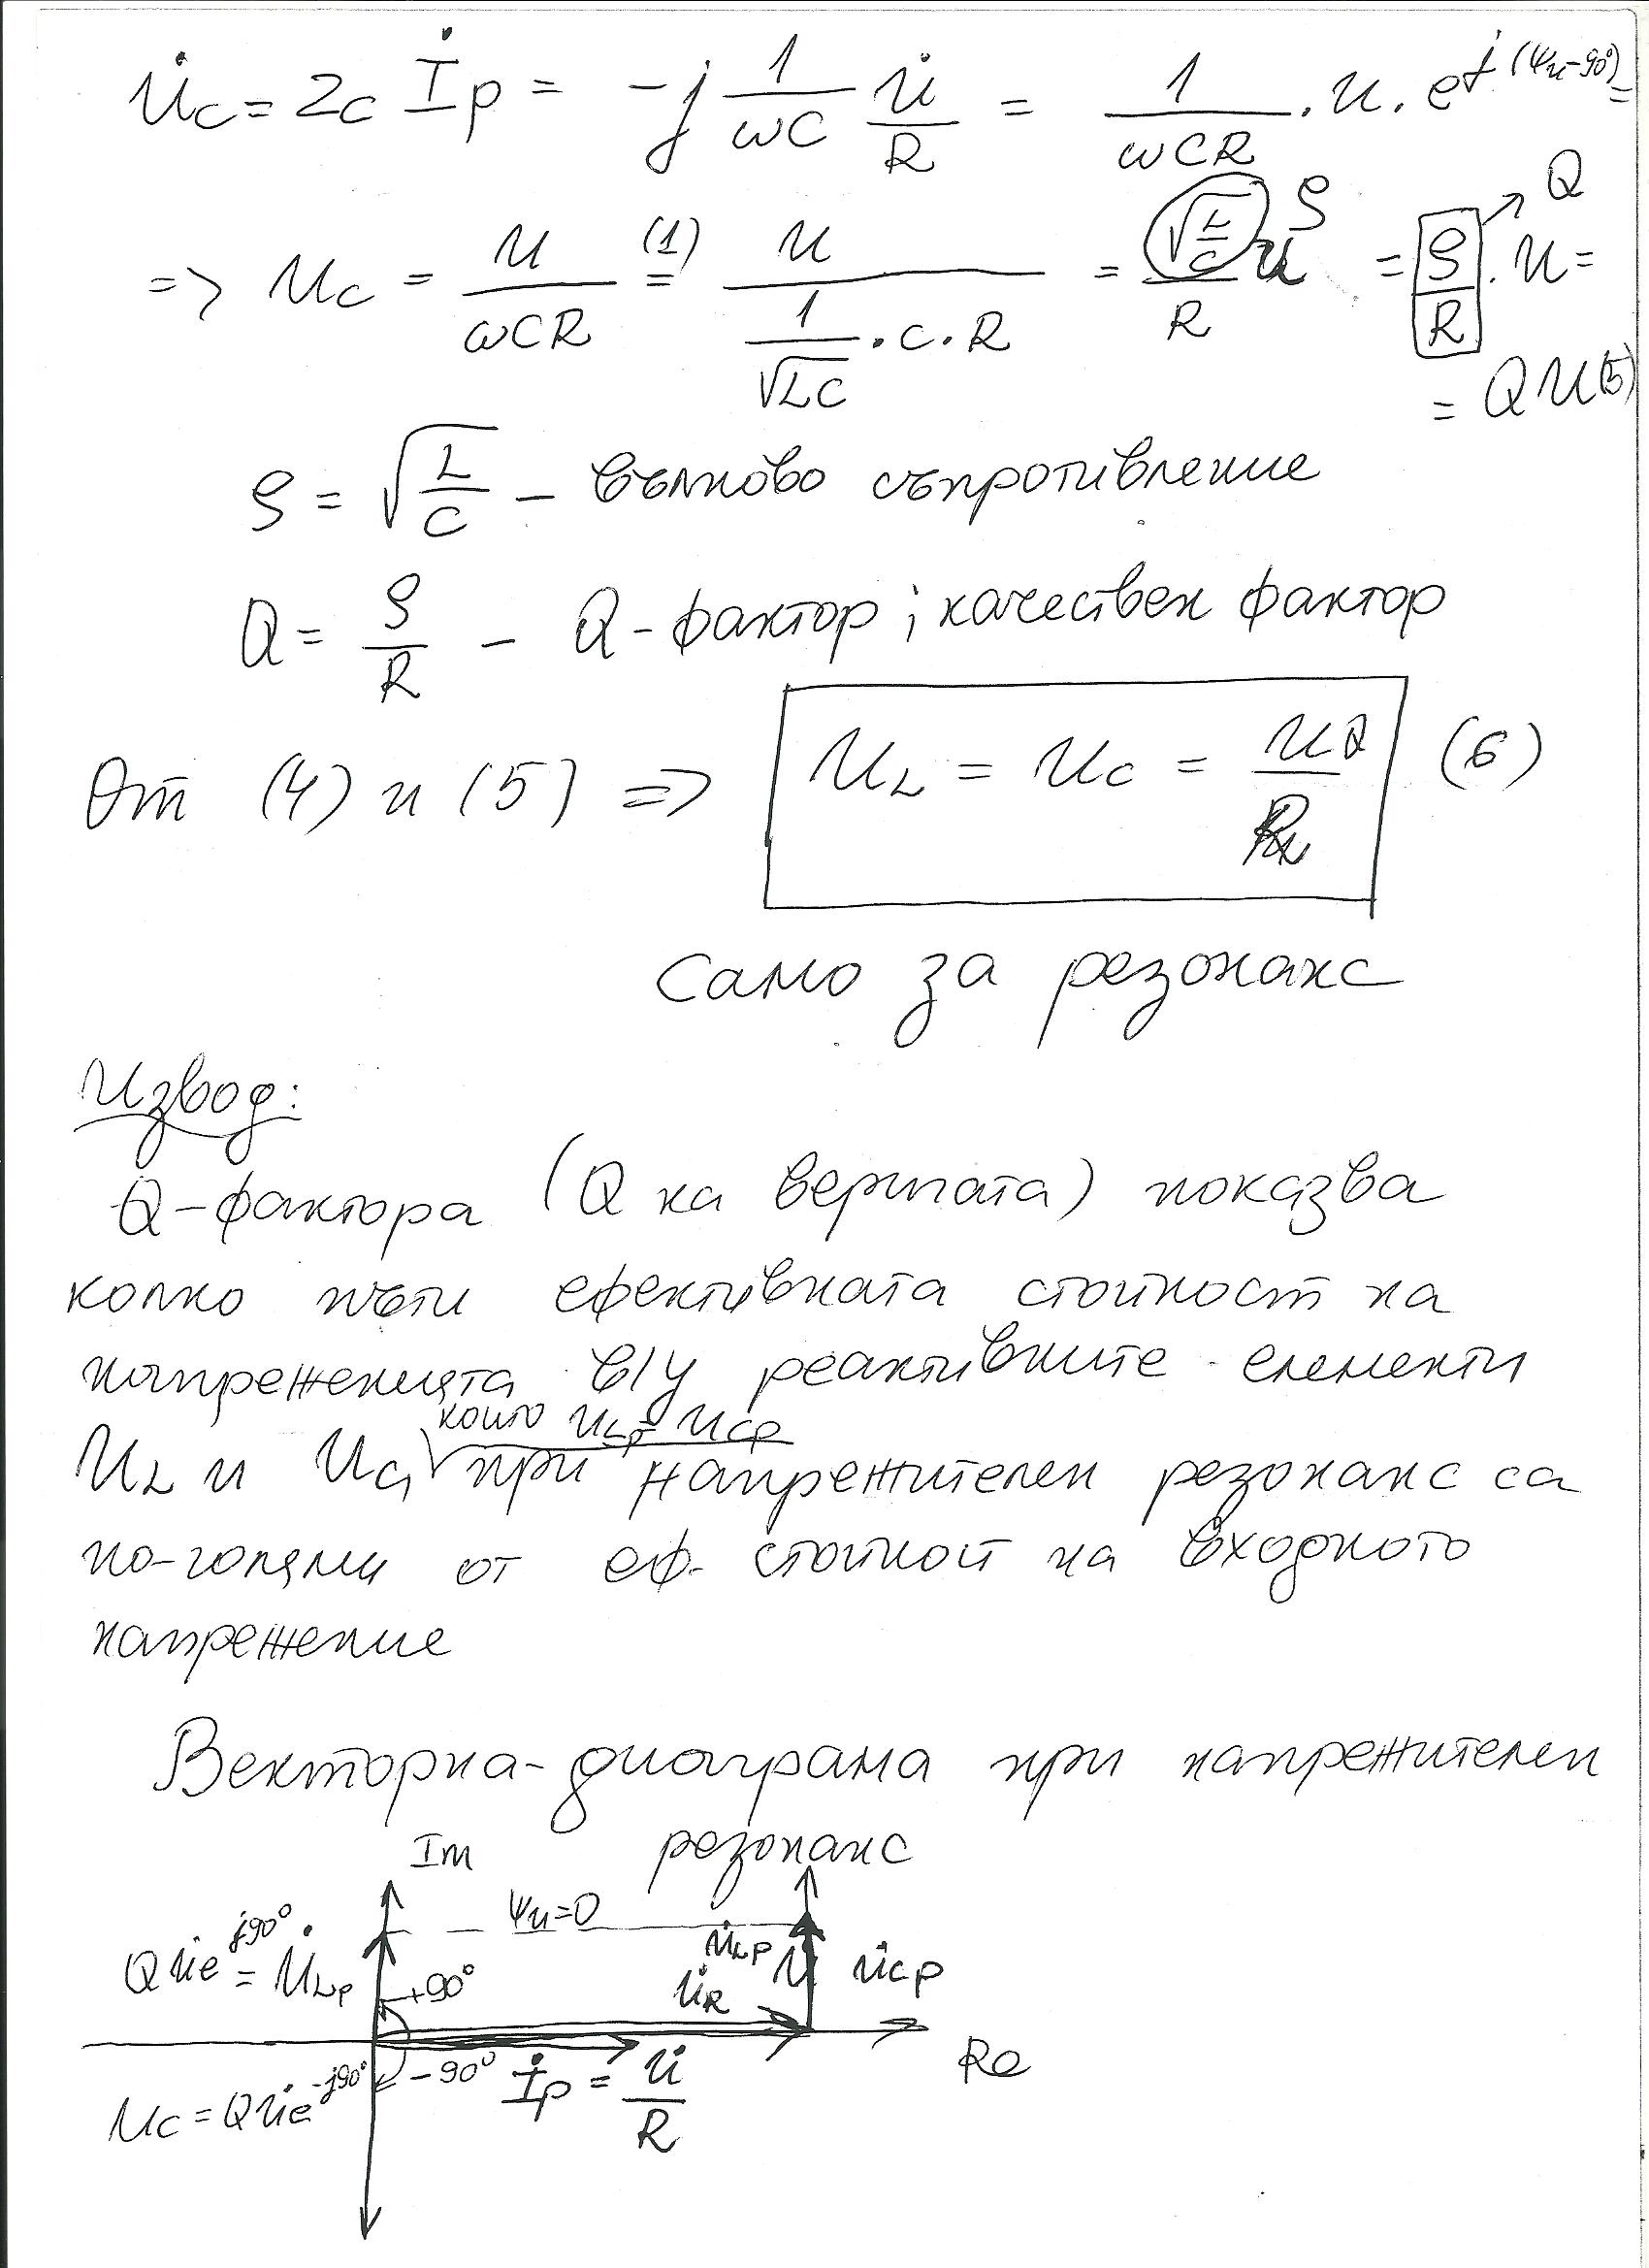 U̇c = Zc İp = -j 1/ωC U̇/R = 1/ωCR . U . e^j(Ψu-90°) =
=> Uc = U/ωCR (1)= U/(1/√LC . C . R) = √(L/C) U/R ρ = ρ/R . U = → Q
= QU (5)
ρ = √(L/C) – вълново съпротивление
Q = ρ/R – Q-фактор; качествен фактор
От (4) и (5) => UL = Uc = UQ (6)
Само за резонанс
Извод:
Q-фактора (Q на веригата) показва
колко пъти ефективната стойност на
напреженията в/у реактивните елементи
които ULp = Ucp
UL и Uc, при напрежителен резонанс са
по-голями от еф. стойност на входното
напрежение
Векторна-диаграма при напрежителен
резонанс
Im
Ψu=0
QU̇e^j90° = U̇Lp
+90°
U̇Lp
U̇cp
U̇R
Re
-90°
İp = U̇/R
Uc = QU̇e^-j90°